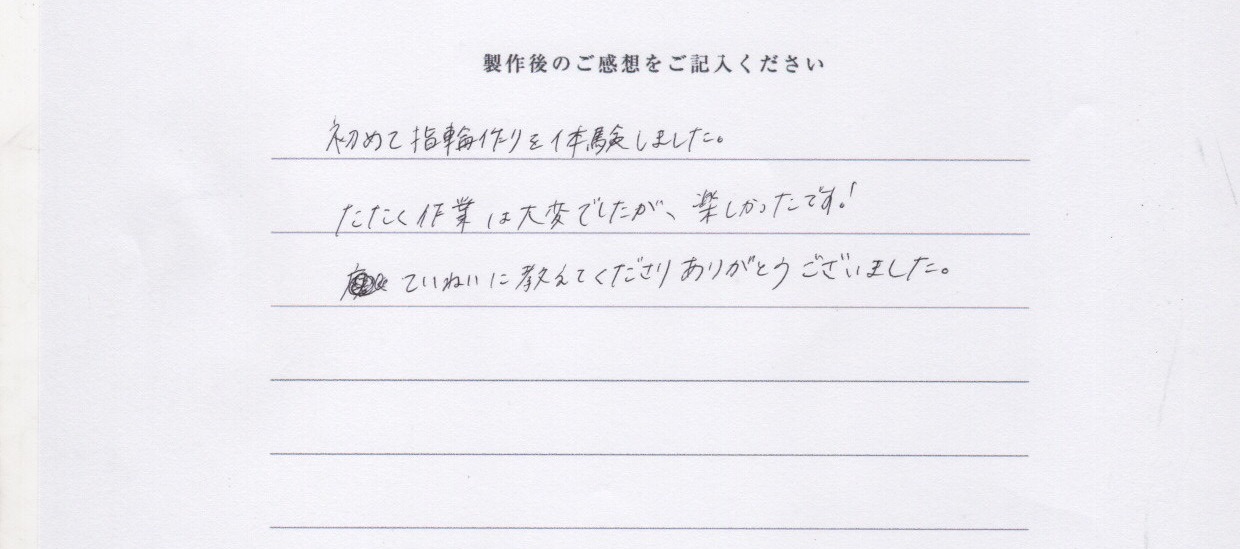 製作後のご感想をご記入ください
初めて指輪作りを体験しました。
たたく作業は大変でしたが、楽しかったです!
ていねいに教えてくださりありがとうございました。